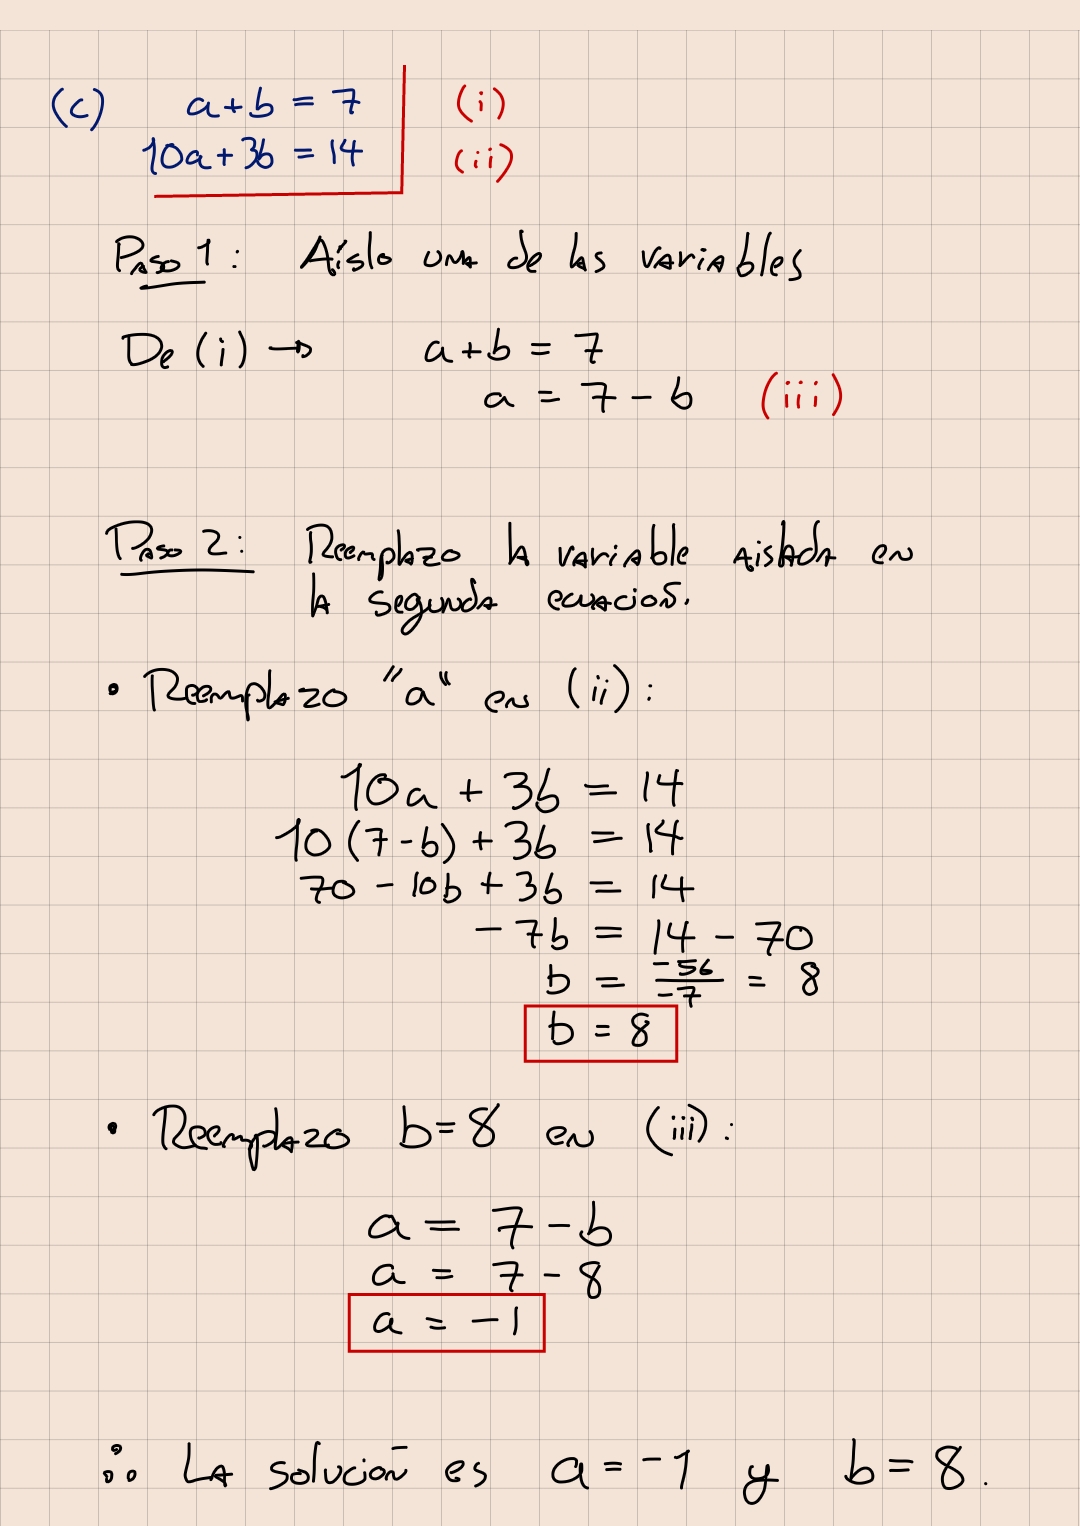 (c) a+b = 7 (i)
10a+3b = 14 (ii)
Paso 1: Aíslo una de las variables
De (i) → a+b = 7
a = 7 - b (iii)
Paso 2: Reemplazo la variable aislada en
la segunda ecuación.
• Reemplazo "a" en (ii):
10a + 3b = 14
10(7-b) + 3b = 14
70 - 10b + 3b = 14
-7b = 14 - 70
b = -56/-7 = 8
b = 8
• Reemplazo b=8 en (iii):
a = 7 - b
a = 7 - 8
a = -1
∴ La solución es a = -1 y b = 8.